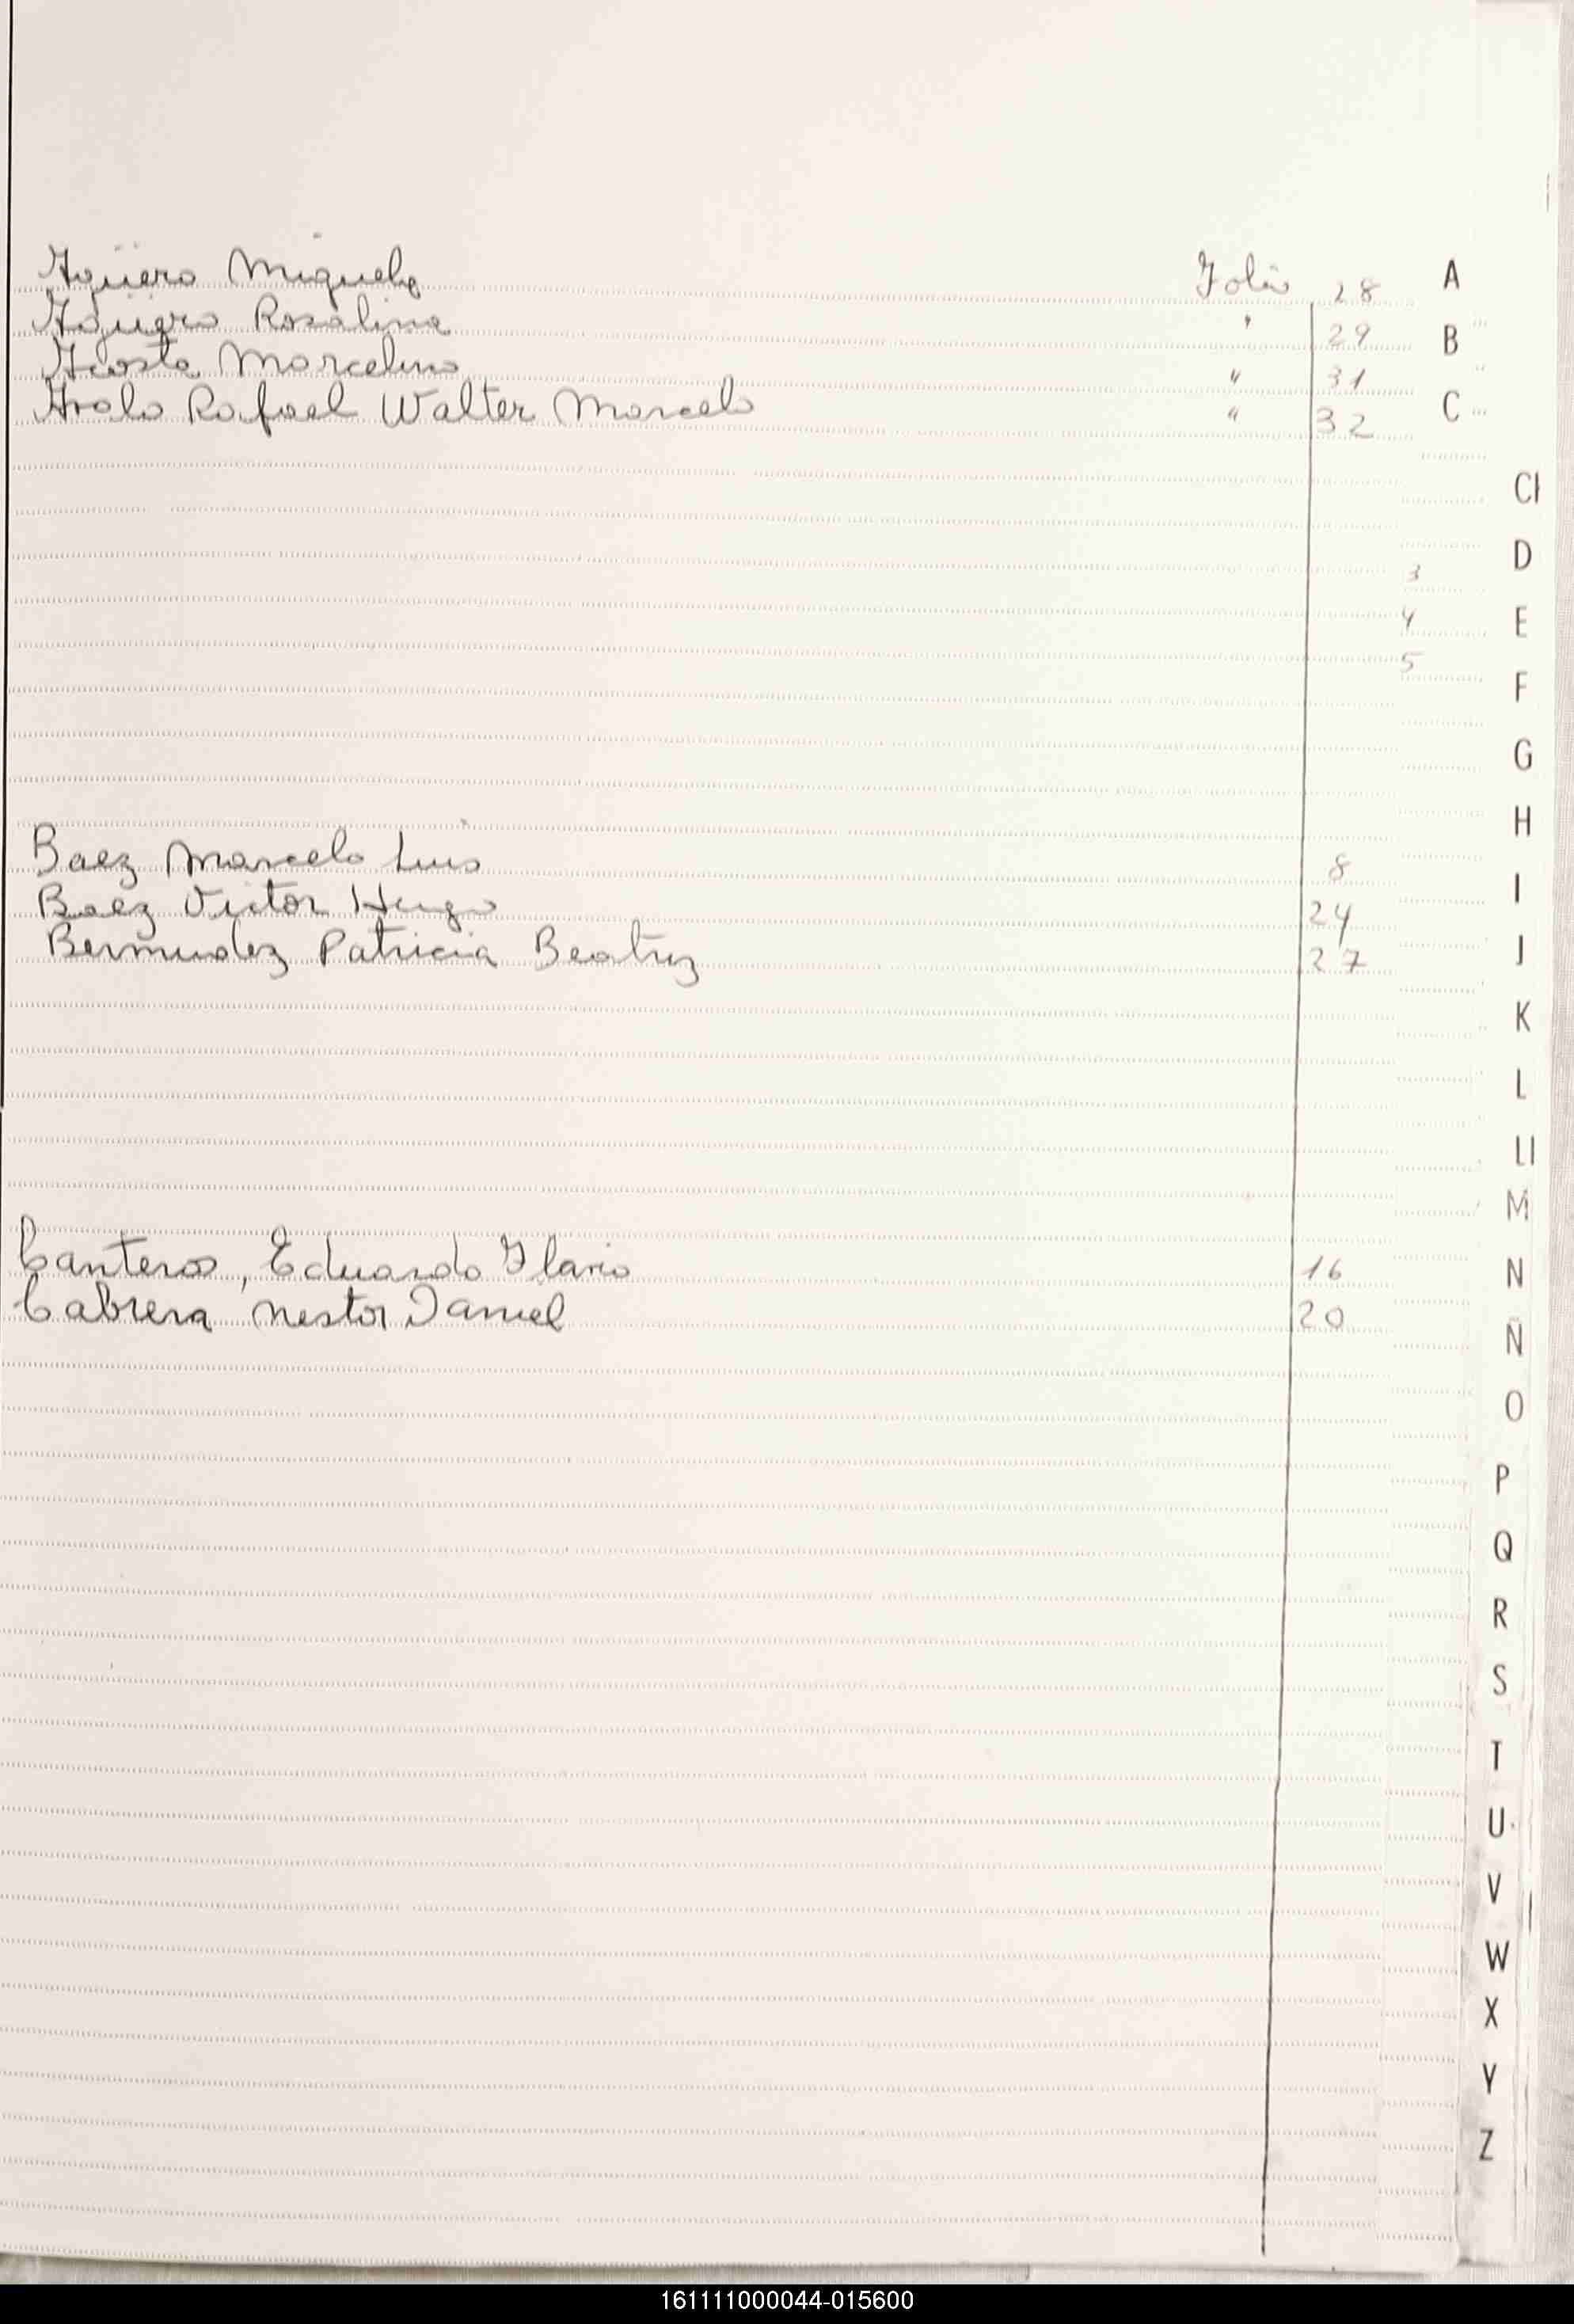 Agüero Miguela Folio 28 A
Agüero Rosalina " 29 B
Acosta Marcelino " 31
Rafael Walter Marcelo " 32 C
Ch
D
3
4 E
5
F
G
H
Baez Marcelo Luis 8
I
Baez Victor Hugo 24
Bermudez Patricia Beatriz 27 J
K
L
Ll
M
Canteros, Eduardo Ilario 16 N
Cabrera Nestor Daniel 20
Ñ
O
P
Q
R
S
T
U
V
W
X
Y
Z
161111000044-015600